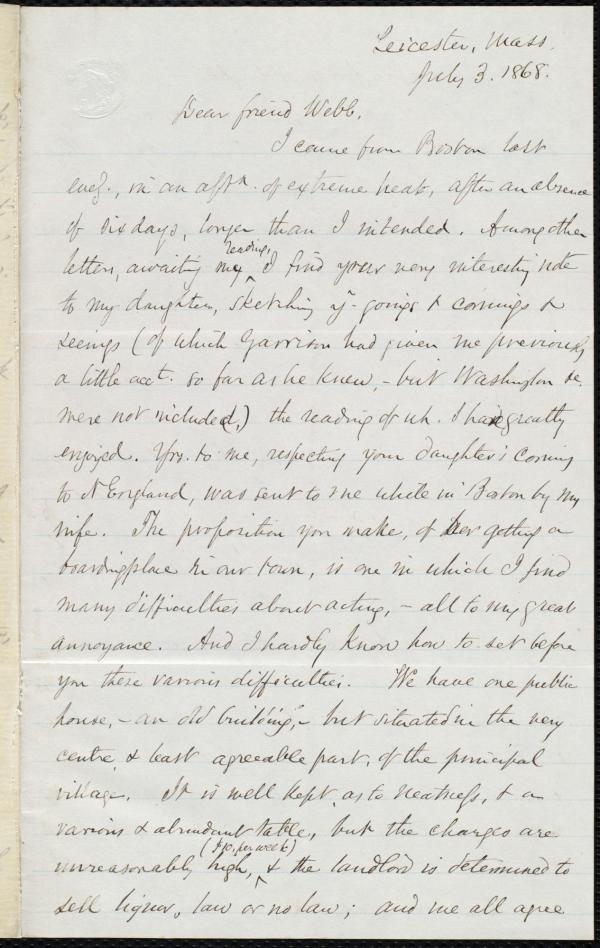 Leicester, Mass.
July 3. 1868.
Dear friend Webb,
I came from Boston last
eveg., in an aftn. of extreme heat, after an absence
of six days, longer than I intended. Among other
letters, awaiting my reading, I find yours very interesting note
to my daughter, sketching yr. goings & comings &
seeings (of which Garrison had given me previously
a little acct. so far as he knew, - but Washington &c.
were not included,) the reading of wh. I have greatly
enjoyed. Yrs. to me, respecting your daughter's coming
to N England, was sent to me while in Boston by my
wife. The proposition you make, of her getting a
boardingplace in our town, is one in which I find
many difficulties about acting, - all to my great
annoyance. And I hardly know how to set before
you these various difficulties. We have one public
house, - an old building, - but situated in the very
centre, & least agreeable part, of the principal
village. It is well kept, as to neatness, & a
various & abundant table, but the charges are
unreasonably high, ($10. per week) & the landlord is determined to
sell liquor, law or no law; and we all agree